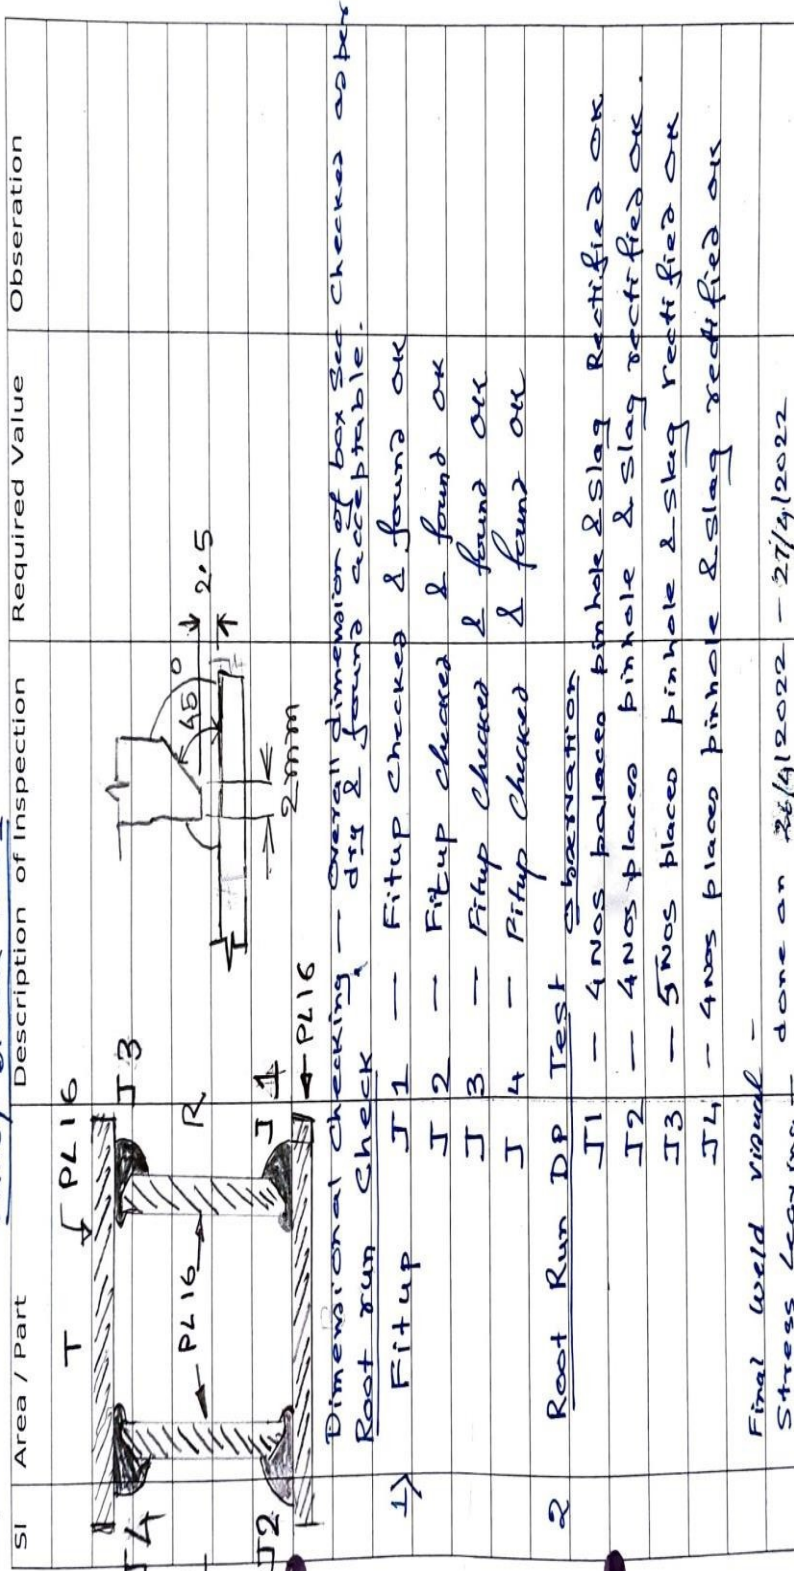 Sl Area / Part Description of Inspection Required Value Obseration
T PL16
J4 J3
PL16 R
J2 J1
PL16
45°
2.5
2mm
Dimensional Checking, — Overall dimension of box Sec Checked as per
dry & found acceptable.
Root run Check
1) Fitup J 1 — Fitup Checked & found OK
J 2 — Fitup checked & found OK
J 3 — Fitup Checked & found OK
J 4 — Fitup Checked & found OK
2 Root Run DP Test Observation
J1 — 4 Nos palaces pinhole & Slag Rectified OK.
J2 — 4 Nos places pinhole & Slag rectified OK.
J3 — 5 Nos places pinhole & Slag rectified OK
J4 — 4 Nos places pinhole & Slag rectified OK
Final Weld visual —
Stress done on 26/4/2022 — 27/4/2022